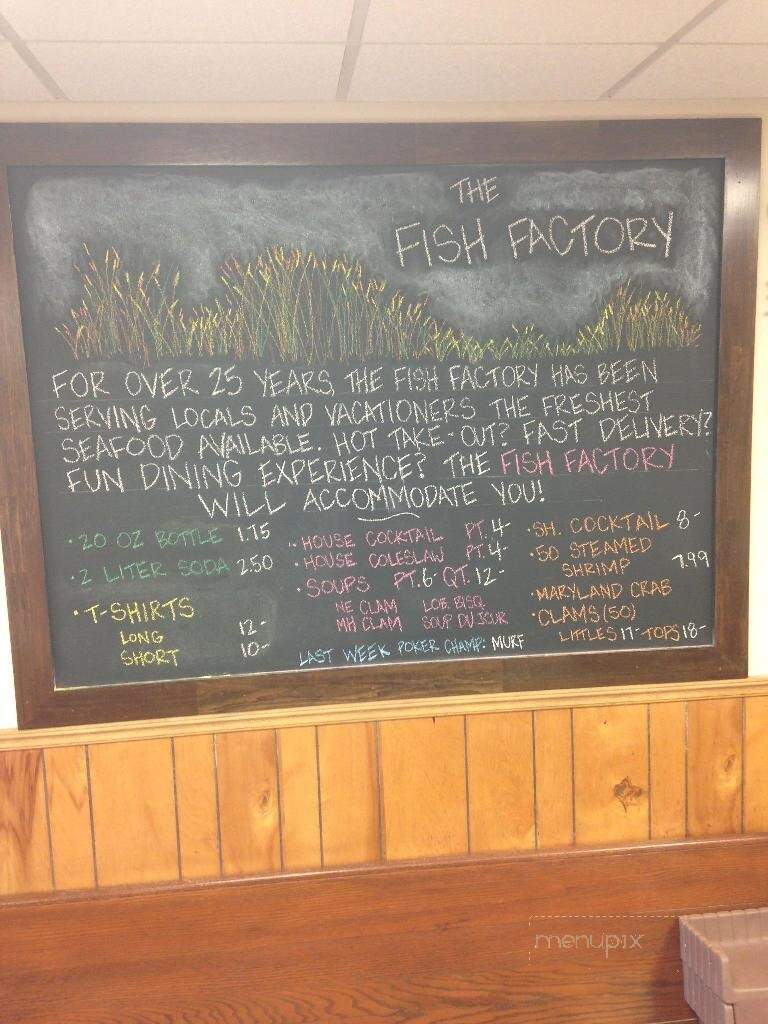 THE
FISH FACTORY
FOR OVER 25 YEARS, THE FISH FACTORY HAS BEEN
SERVING LOCALS AND VACATIONERS THE FRESHEST
SEAFOOD AVAILABLE. HOT TAKE-OUT? FAST DELIVERY?
FUN DINING EXPERIENCE? THE FISH FACTORY
WILL ACCOMMODATE YOU!
• 20 OZ BOTTLE 1.75
• 2 LITER SODA 2.50
• T-SHIRTS
LONG 12-
SHORT 10-
• HOUSE COCKTAIL PT. 4-
• HOUSE COLESLAW PT. 4-
• SOUPS PT. 6- QT. 12-
NE CLAM LOB. BISQ.
MH CLAM SOUP DU JOUR
• SH. COCKTAIL 8-
• 50 STEAMED
SHRIMP 7.99
• MARYLAND CRAB
• CLAMS (50)
LITTLES 17- TOPS 18-
LAST WEEK POKER CHAMP: MURF
menupix